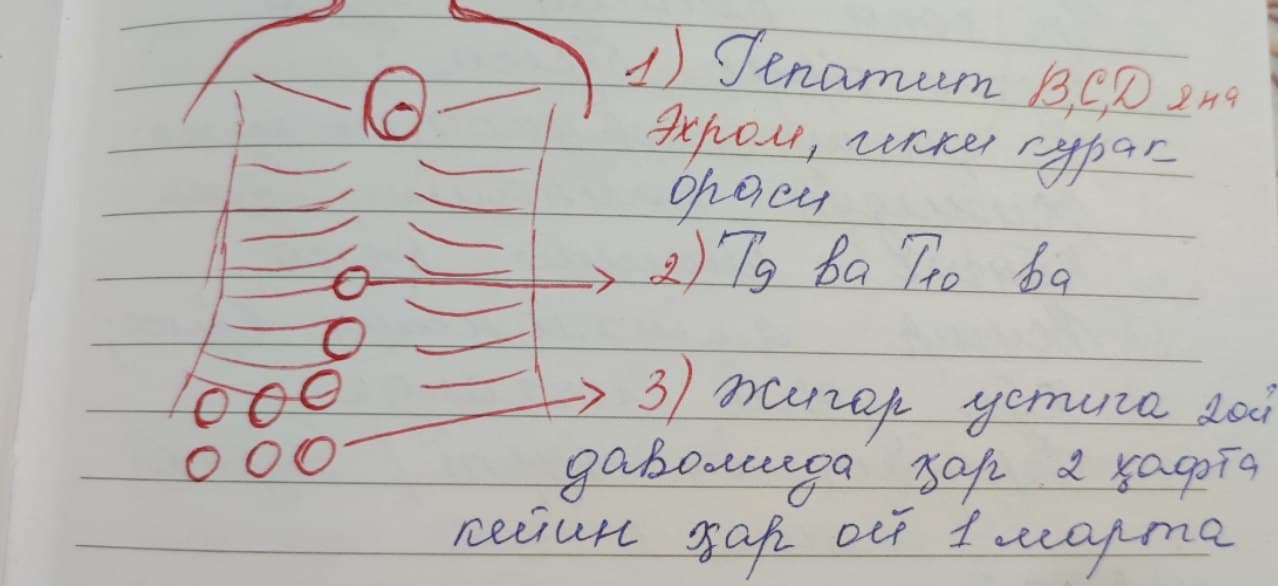 1) Гепатит В,С,D яна
Эхром, икки курак
ораси
2) Т9 ва Т10 ва
3) Жигар устига 2ой
даволида ҳар 2 ҳафта
кейин ҳар ой 1 марта